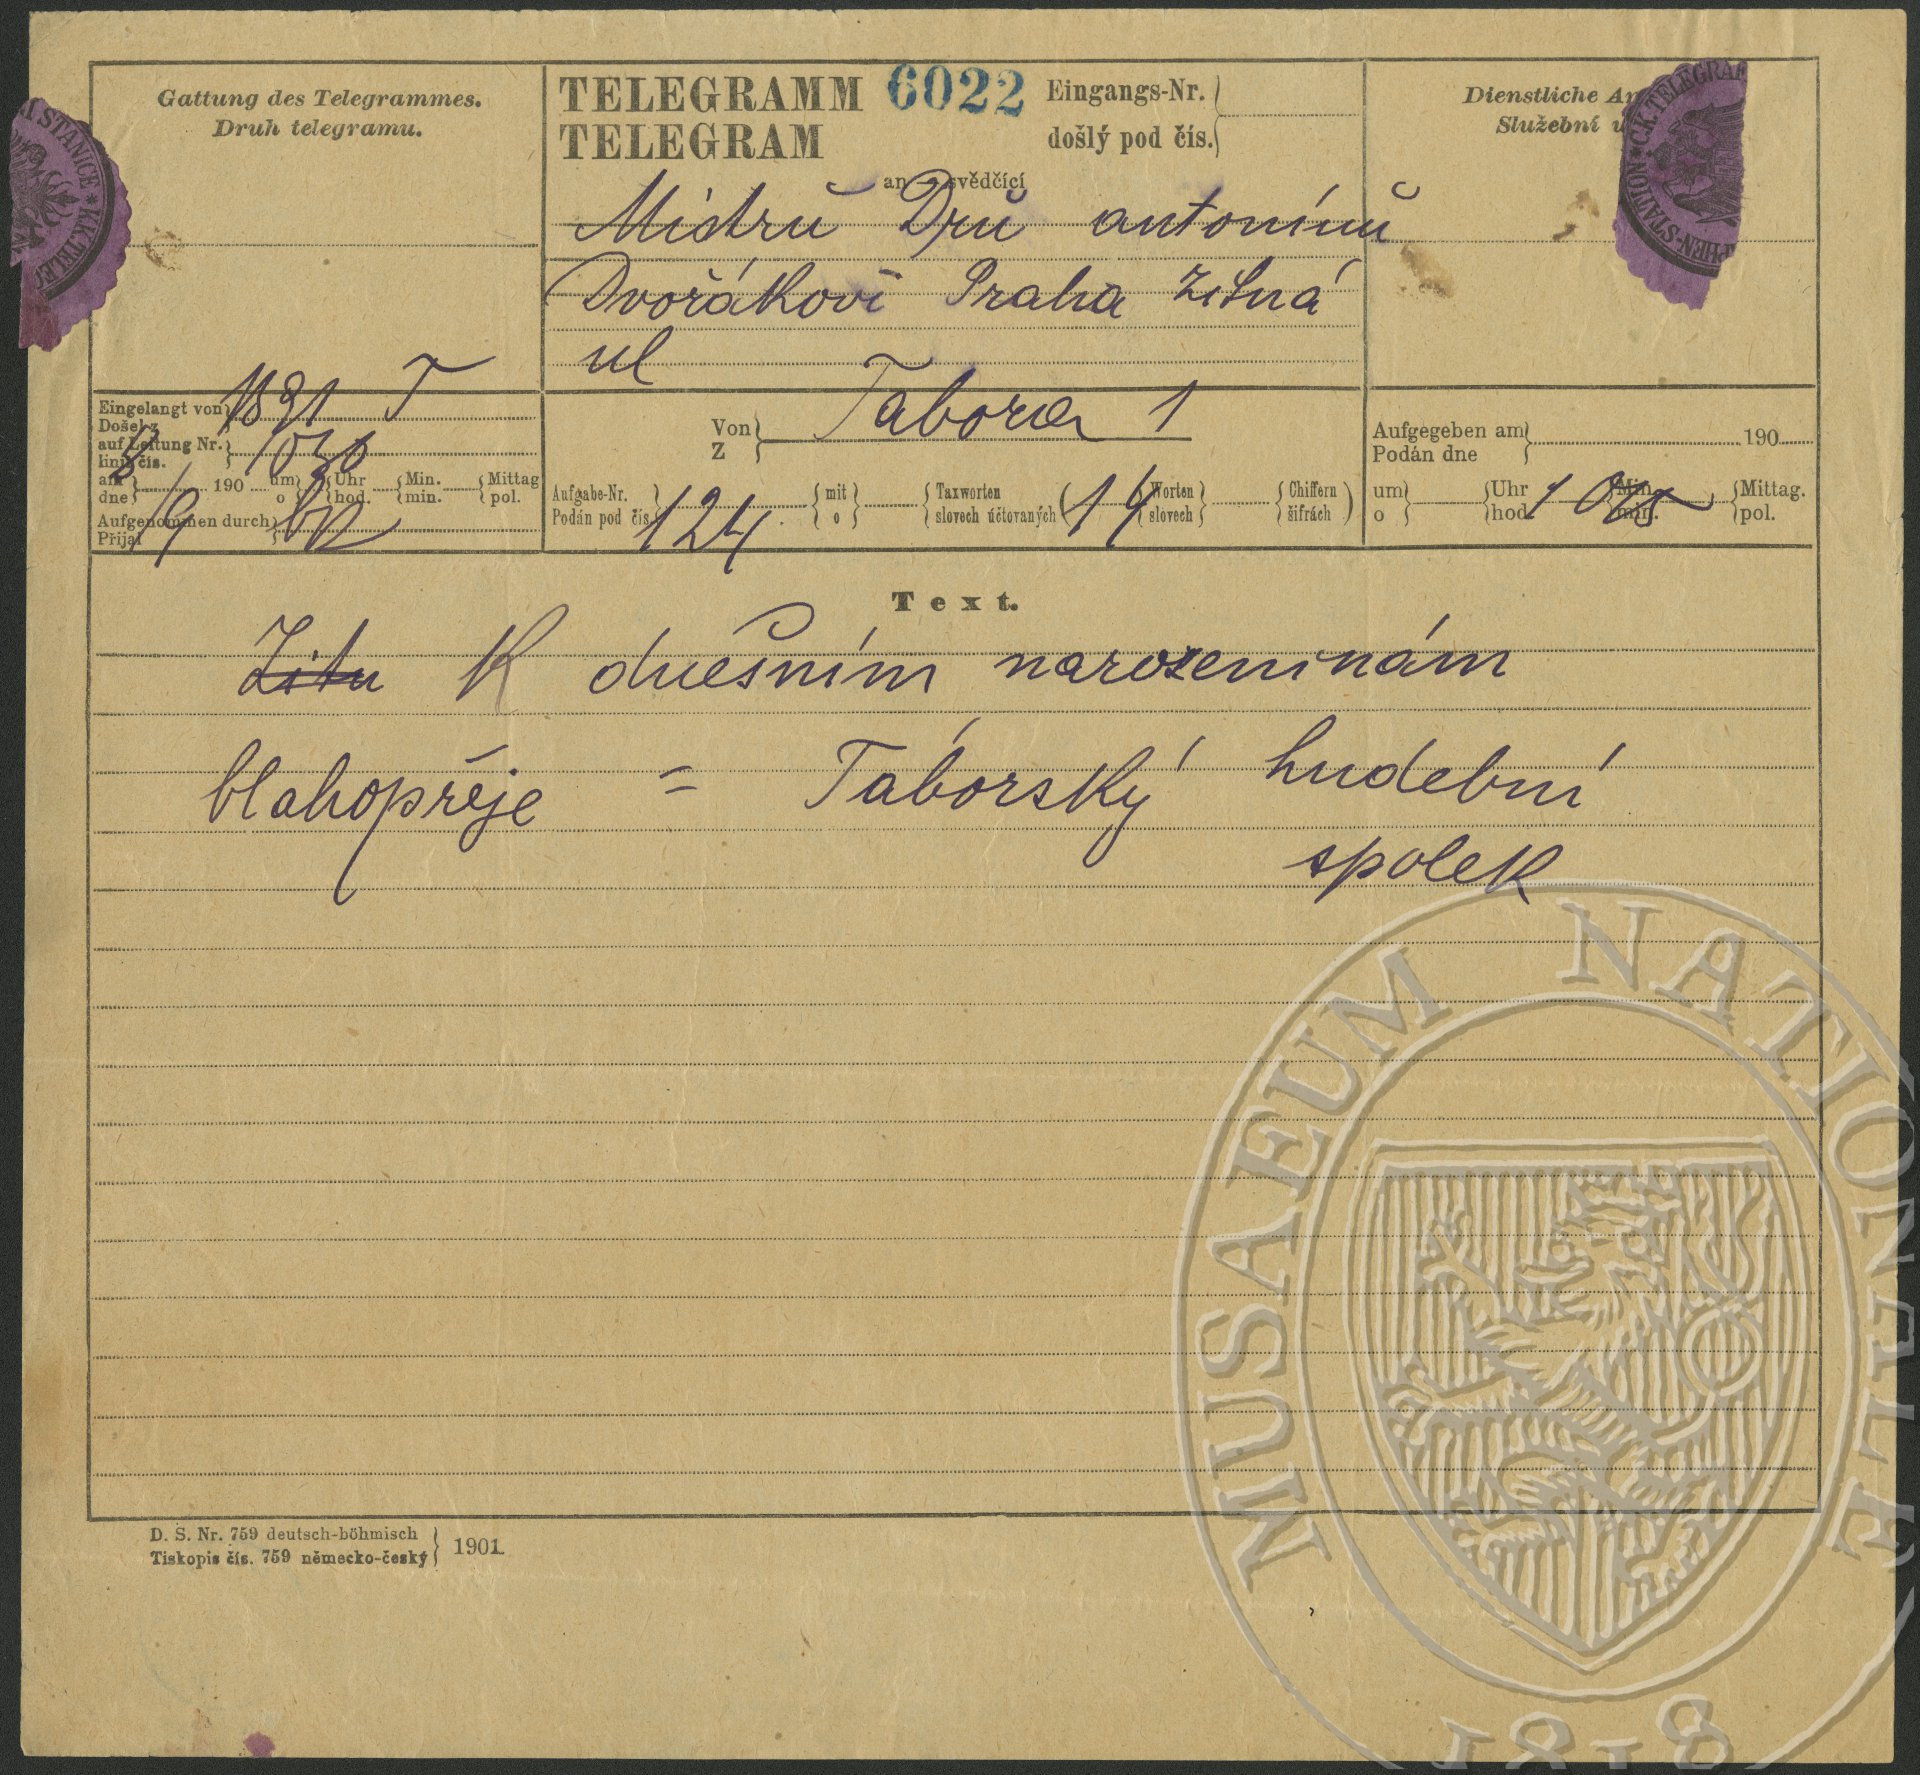 Gattung des Telegrammes.
Druh telegramu.
TELEGRAMM 6022 Eingangs-Nr.
TELEGRAM došlý pod čís.
Dienstliche An
Služební u
STANICE * K.K. TELEG
STATION * C.K. TELEGRAF
PHEN-STATION
an svědčící
Mistru Dru antonínu
Dvořákovi Praha žitná
ul
Eingelangt von 1891 T
Došel z
auf Leitung Nr. 1030
linie čís.
am 190 um Uhr Min. Mittag
dne o hod. min. pol.
Aufgenommen durch
Přijal
Von Tabora 1
Z
Aufgabe-Nr. 124 mit Taxworten 14 Worten Chiffern
Podán pod čís. o slovech účtovaných ( slovech šifrách )
Aufgegeben am 190
Podán dne
um Uhr 1 Min. Mittag.
o hod. min. pol.
Text.
Zitu K dnešním narozeninám
blahopřeje = Táborský hudební
spolek
D. S. Nr. 759 deutsch-böhmisch
Tiskopis čís. 759 německo-český 1901.
MUSAEUM NATIONALE
1818